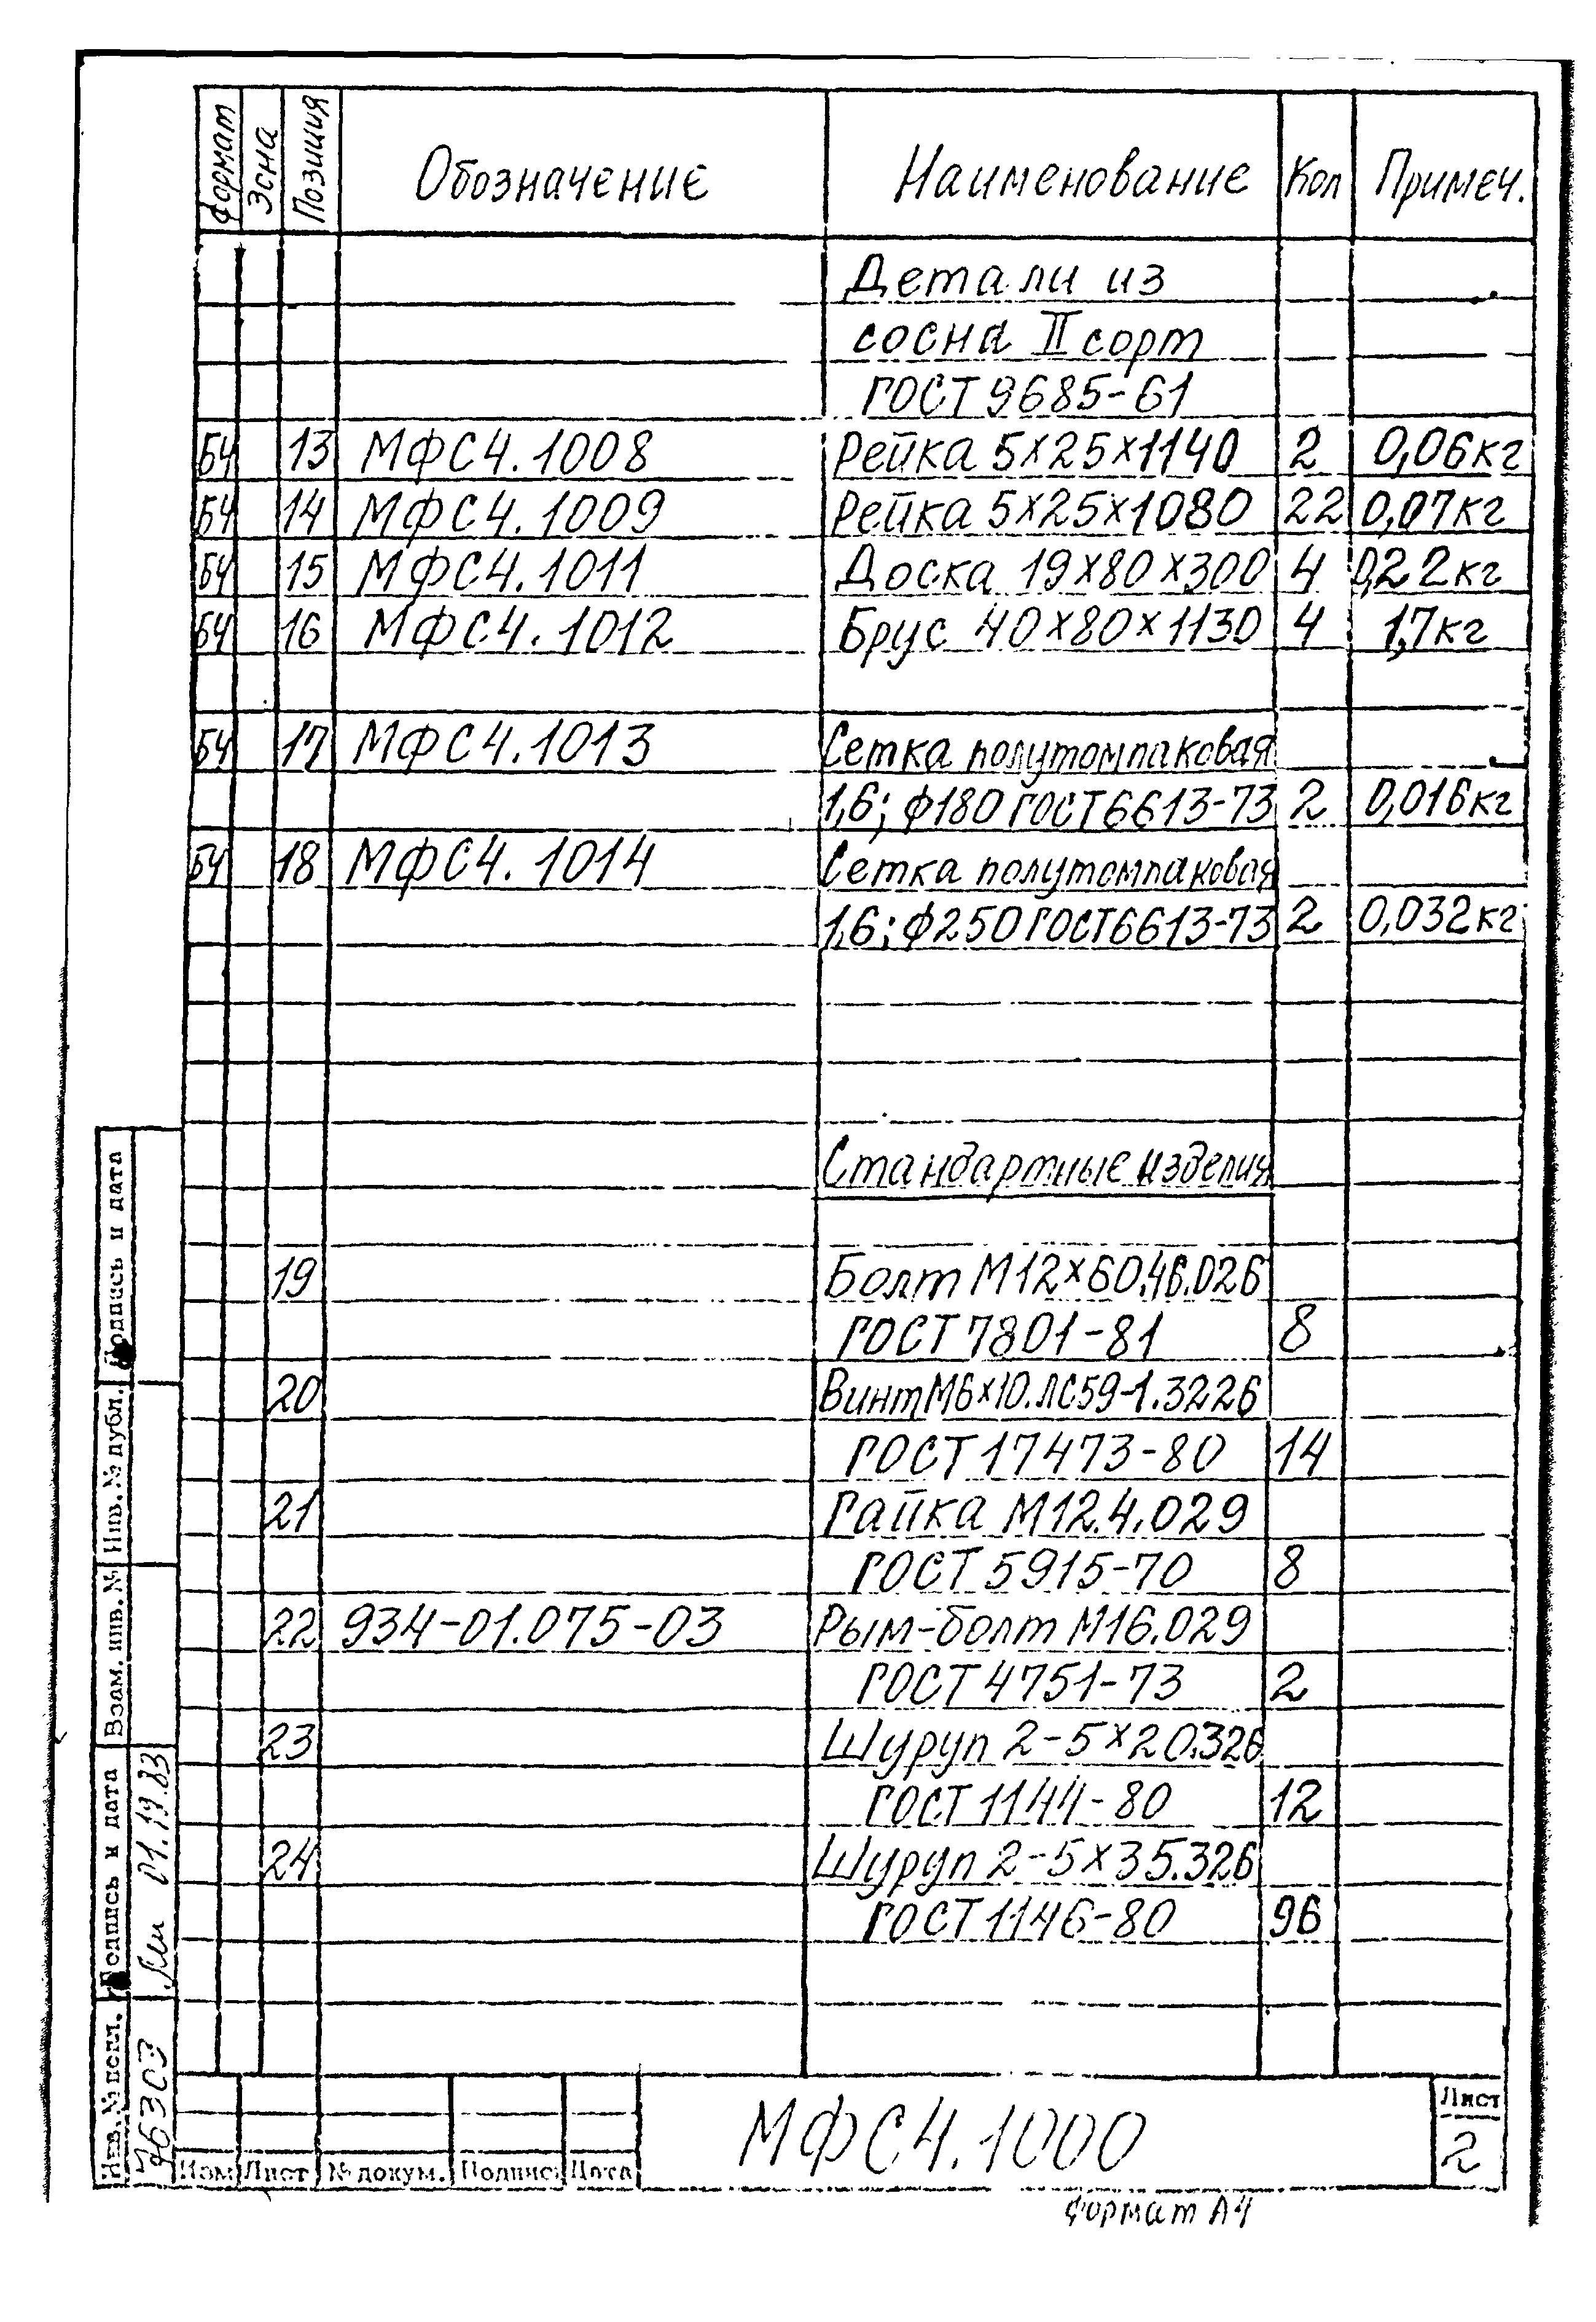 Формат Зона Позиция Обозначение Наименование Кол Примеч.
Детали из
сосна II сорт
ГОСТ 9685-61
БЧ 13 МФС4.1008 Рейка 5×25×1140 2 0,06кг
БЧ 14 МФС4.1009 Рейка 5×25×1080 22 0,07кг
БЧ 15 МФС4.1011 Доска 19×80×300 4 0,22кг
БЧ 16 МФС4.1012 Брус 40×80×1130 4 1,7кг
БЧ 17 МФС4.1013 Сетка полутомпаковая
1,6; ф180 ГОСТ 6613-73 2 0,016кг
БЧ 18 МФС4.1014 Сетка полутомпаковая
1,6; ф250 ГОСТ 6613-73 2 0,032кг
Стандартные изделия
19 Болт М12×60.46.026
ГОСТ 7801-81 8
20 Винт М6×10.ЛС59-1.3226
ГОСТ 17473-80 14
21 Гайка М12.4.029
ГОСТ 5915-70 8
22 934-01.075-03 Рым-болт М16.029
ГОСТ 4751-73 2
23 Шуруп 2-5×20.326
ГОСТ 1144-80 12
24 Шуруп 2-5×35.326
ГОСТ 1146-80 96
Подпись и дата
Инв. № дубл.
Взам. инв. №
Подпись и дата
Инв. № подл.
Изм Лист № докум. Подпись Дата
МФС4.1000
Лист
2
Формат А4